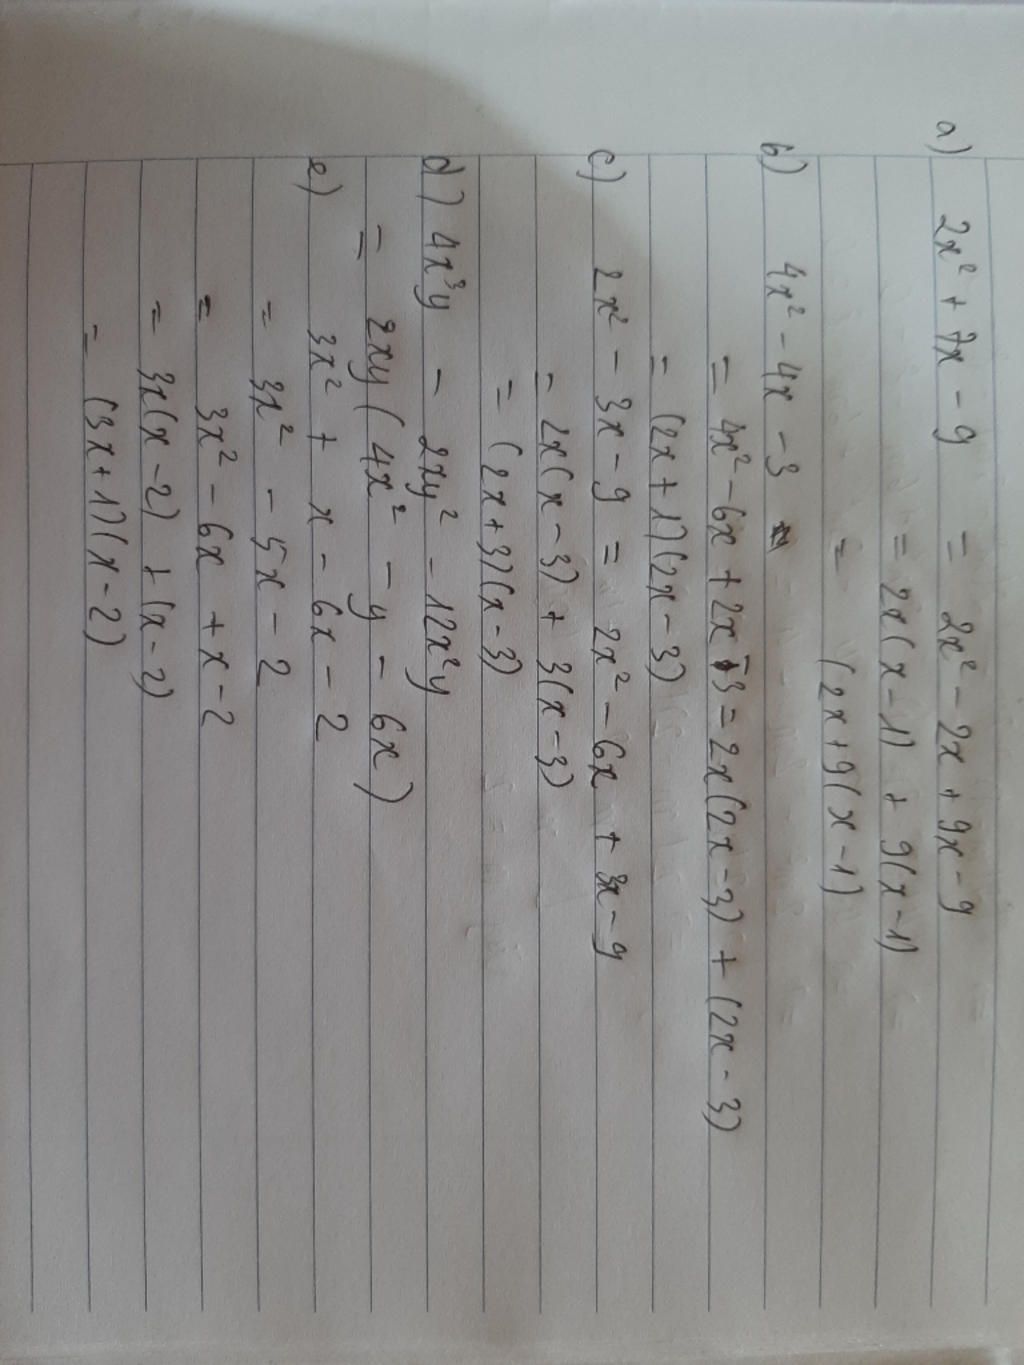 a) 2x² + 7x - 9 = 2x² - 2x + 9x - 9
= 2x(x - 1) + 9(x - 1)
= (2x+9(x - 1)
b) 4x² - 4x - 3
= 4x² - 6x + 2x - 3 = 2x(2x - 3) + (2x - 3)
= (2x + 1)(2x - 3)
c) 2x² - 3x - 9 = 2x² - 6x + 3x - 9
= 2x(x - 3) + 3(x - 3)
= (2x+3)(x - 3)
d) 4x³y - 2xy² - 12x²y
= 2xy(4x² - y - 6x)
e) 3x² + x - 6x - 2
= 3x² - 5x - 2
= 3x² - 6x + x - 2
= 3x(x - 2) + (x - 2)
= (3x + 1)(x - 2)